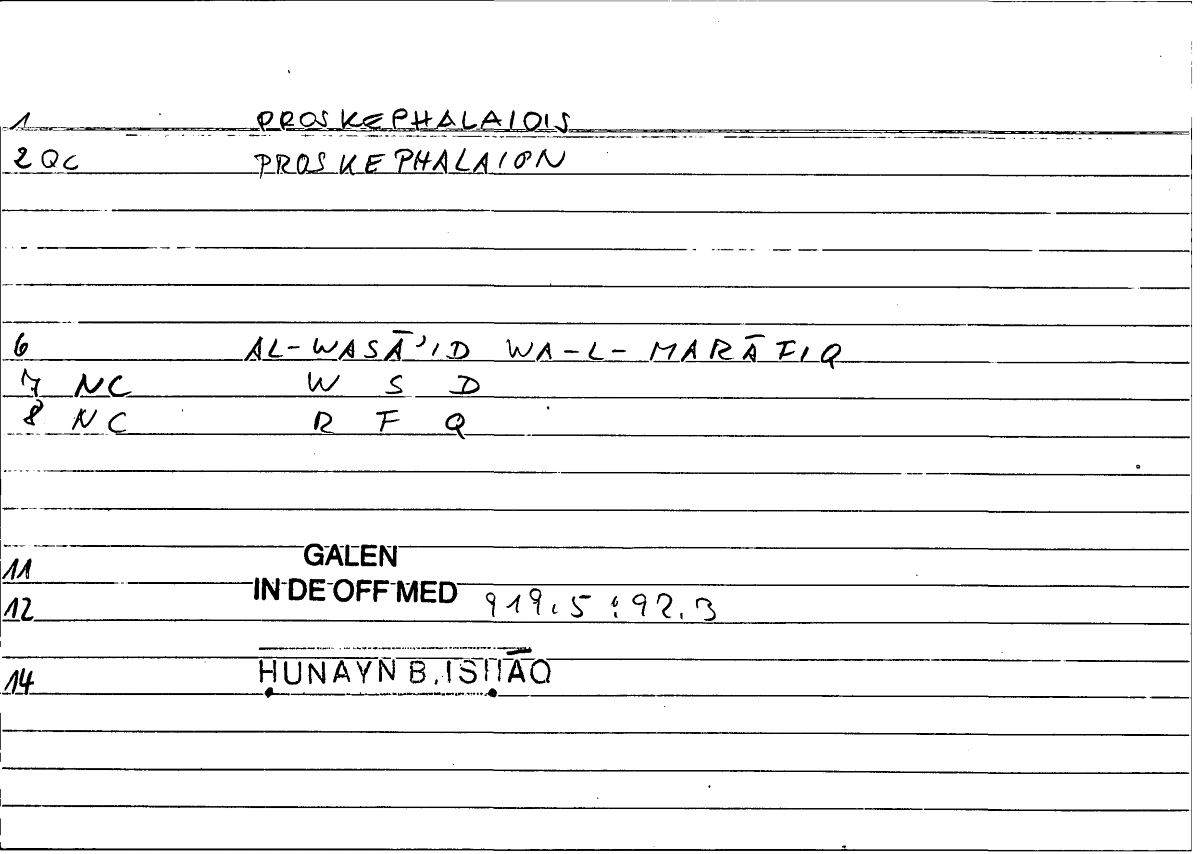 1 PROSKEPHALAIOIS
2 QC PROSKEPHALAION
6 AL-WASĀ'ID WA-L-MARĀFIQ
7 NC W S D
8 NC R F Q
11 GALEN
12 IN DE OFF MED 919,5 : 92.3
14 ḤUNAYN B. ISḤĀQ